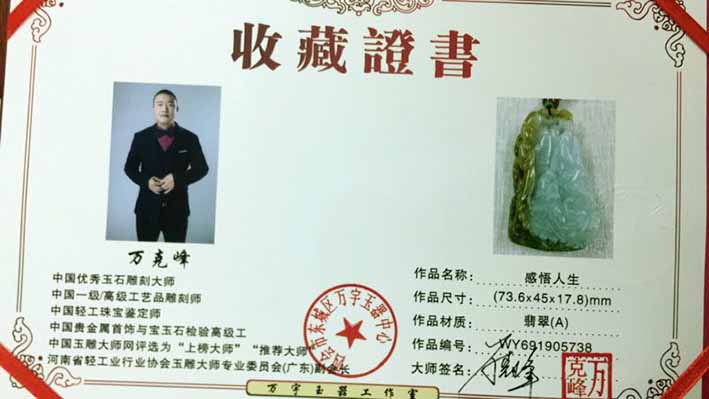 收藏證書
万克峰
中国优秀玉石雕刻大师
中国一级/高级工艺品雕刻师
中国轻工珠宝鉴定师
中国贵金属首饰与宝玉石检验高级工
中国玉雕大师网评选为“上榜大师”“推荐大师”
河南省轻工业行业协会玉雕大师专业委员会(广东)副会长
市东城区万宇玉器中心
作品名称: 感悟人生
作品尺寸: (73.6x45x17.8)mm
作品材质: 翡翠(A)
作品编号: WY691905738
大师签名:
万克峰
万宇玉器工作室